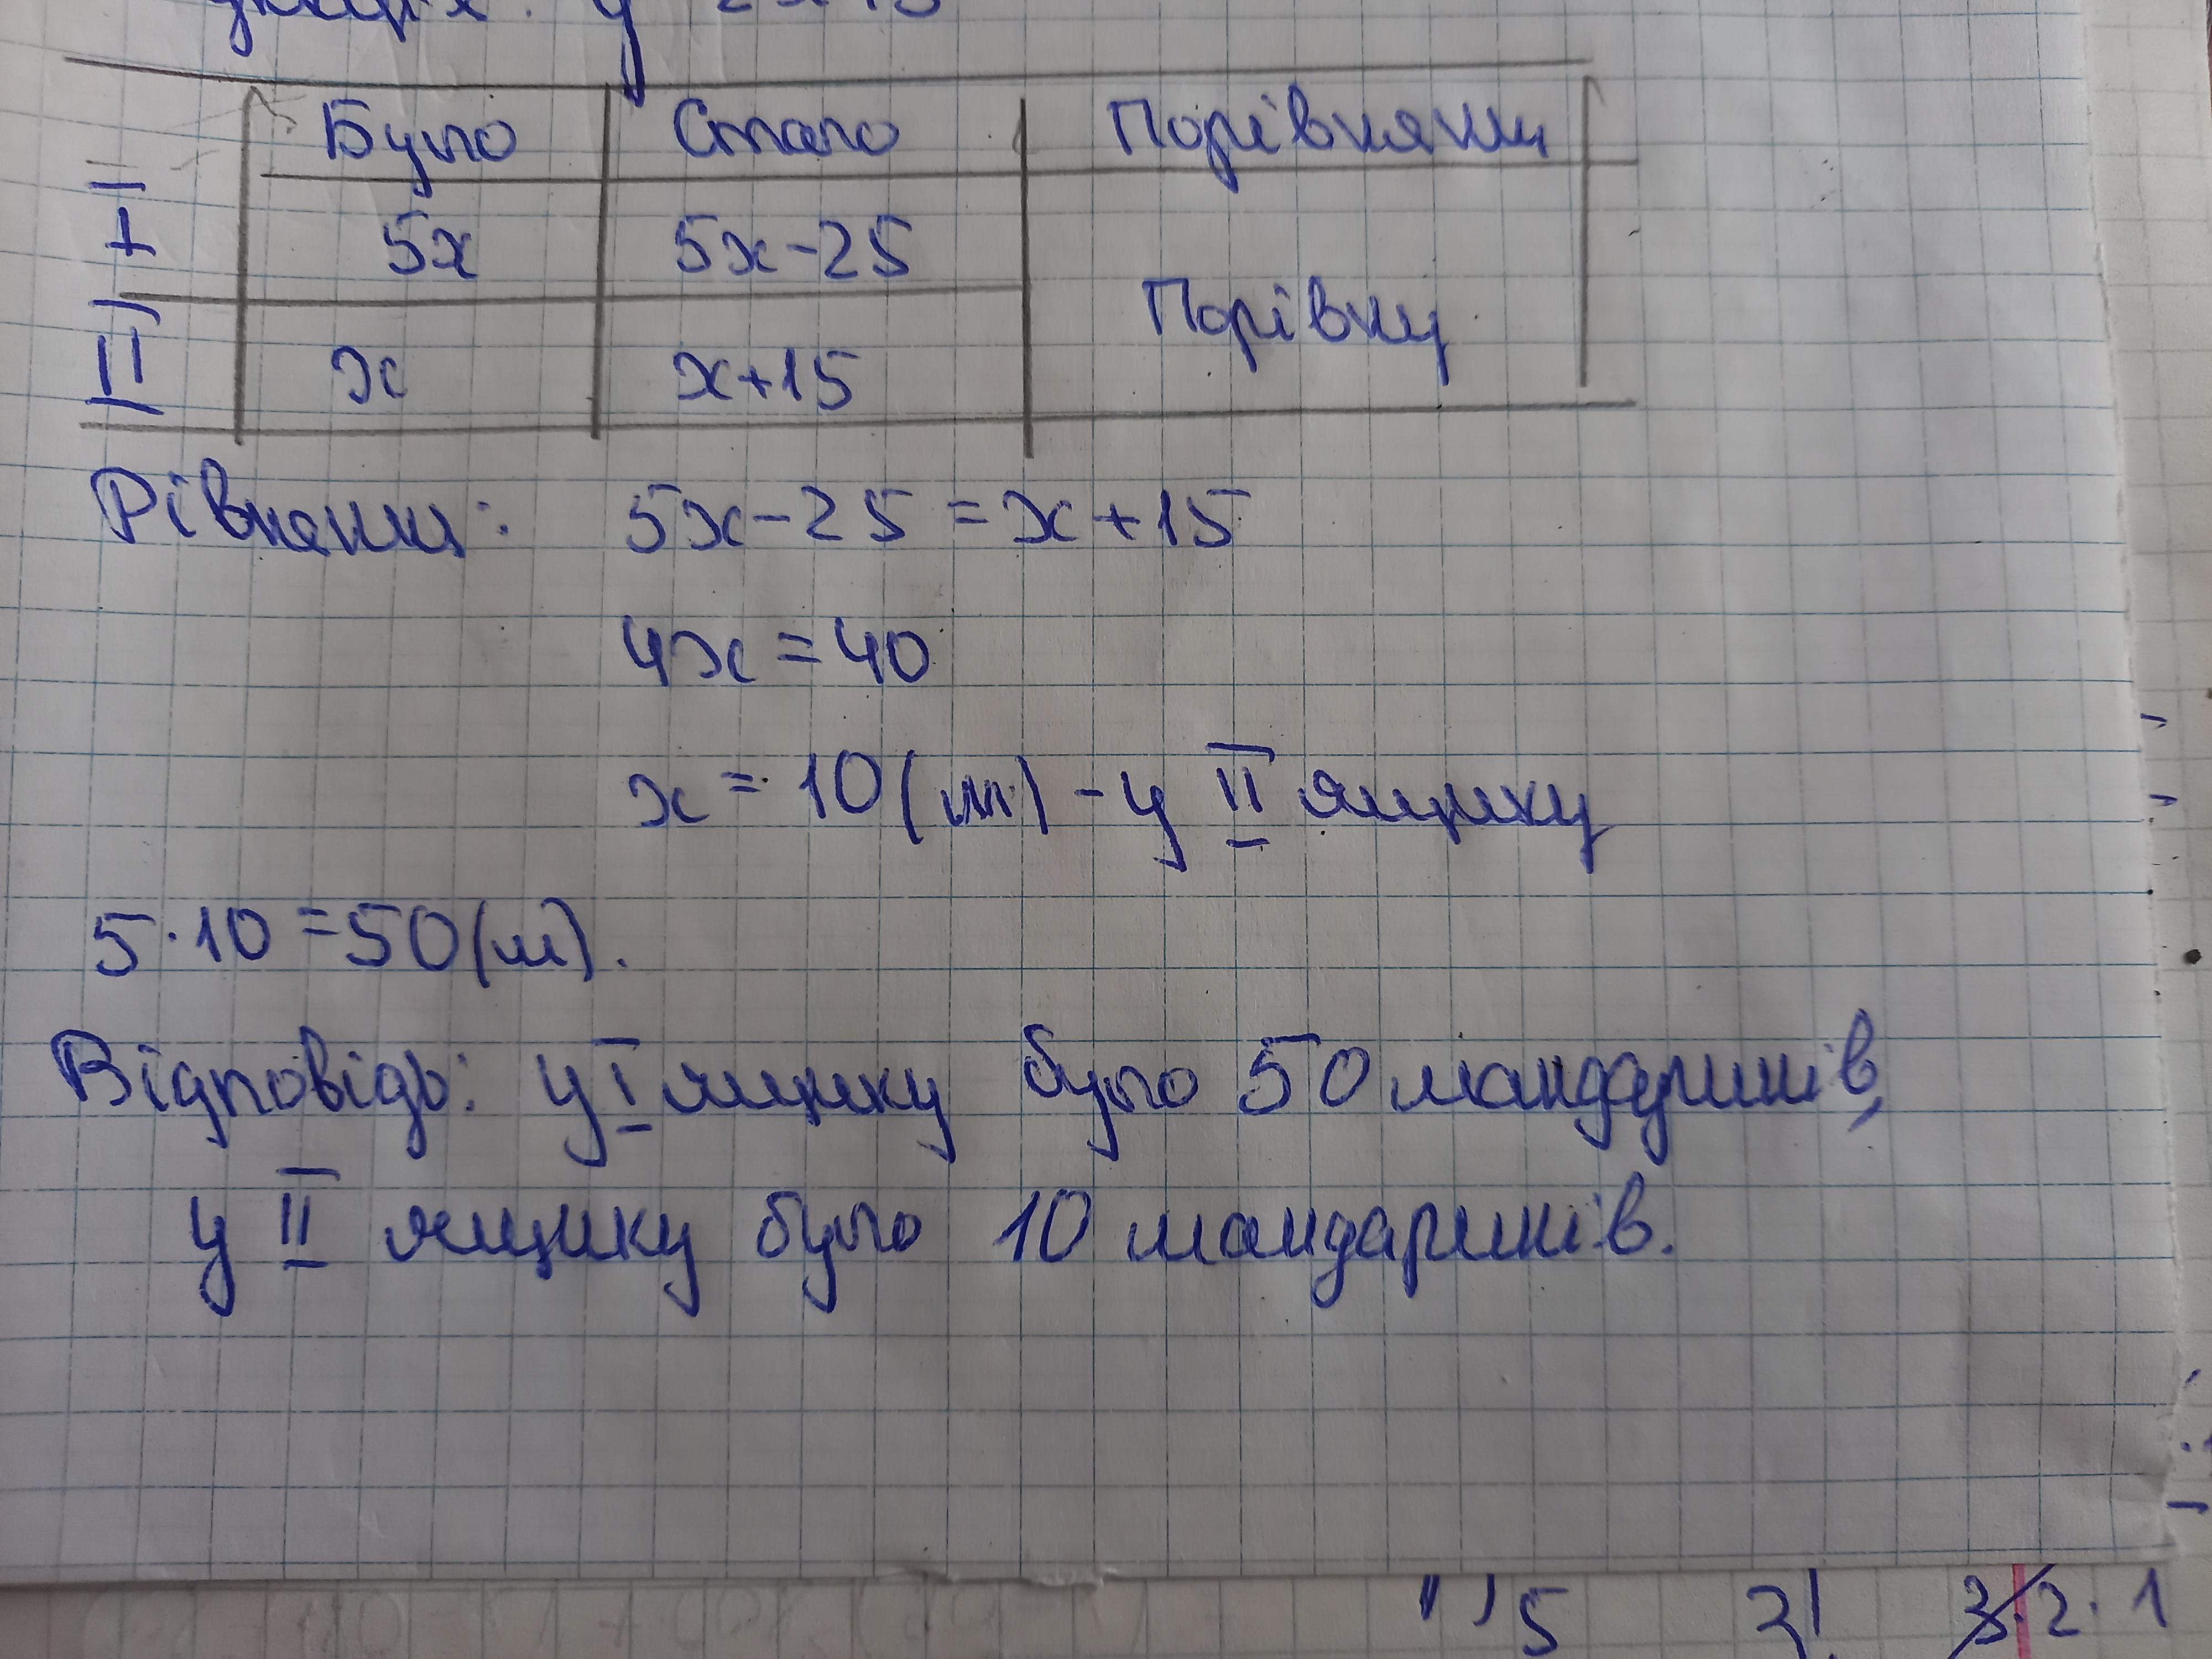 Було Стало Порівняння
I 5x 5x-25
Порівну
II x x+15
Рівняння: 5x-25=x+15
4x=40
x=10(м)-у II ящику
5·10=50(м).
Відповідь: у I ящику було 50 мандаринів,
у II ящику було 10 мандаринів.
5 3·2·1